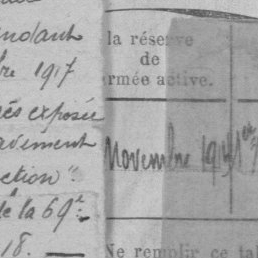 ndant
bre 1917
és exposée
avement
ction".
de la 69e
18. —
la réserve
de
armée active.
Novembre 191
1er
Ne remplir ce tab